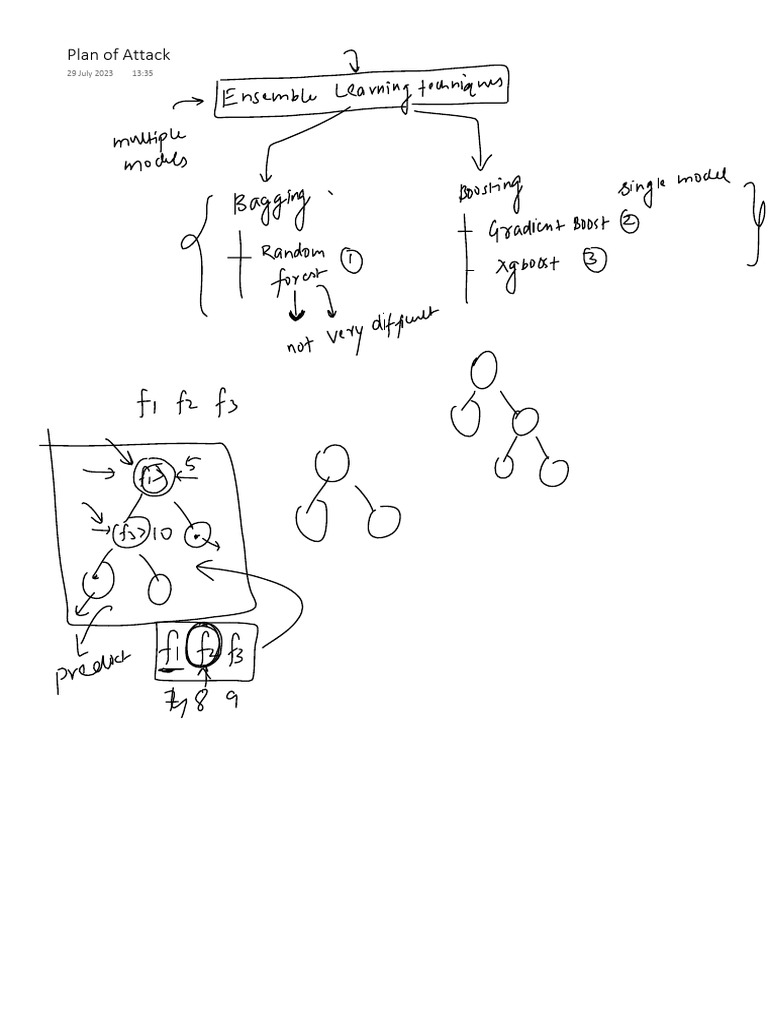 Plan of Attack
29 July 2023 13:35
Ensemble Learning techniques
multiple
models
Bagging
Boosting
single model
Random
forest ①
Gradient Boost ②
Xgboost ③
not very difficult
f1 f2 f3
5
f3> 10
predict
f1 f2 f3
8 9